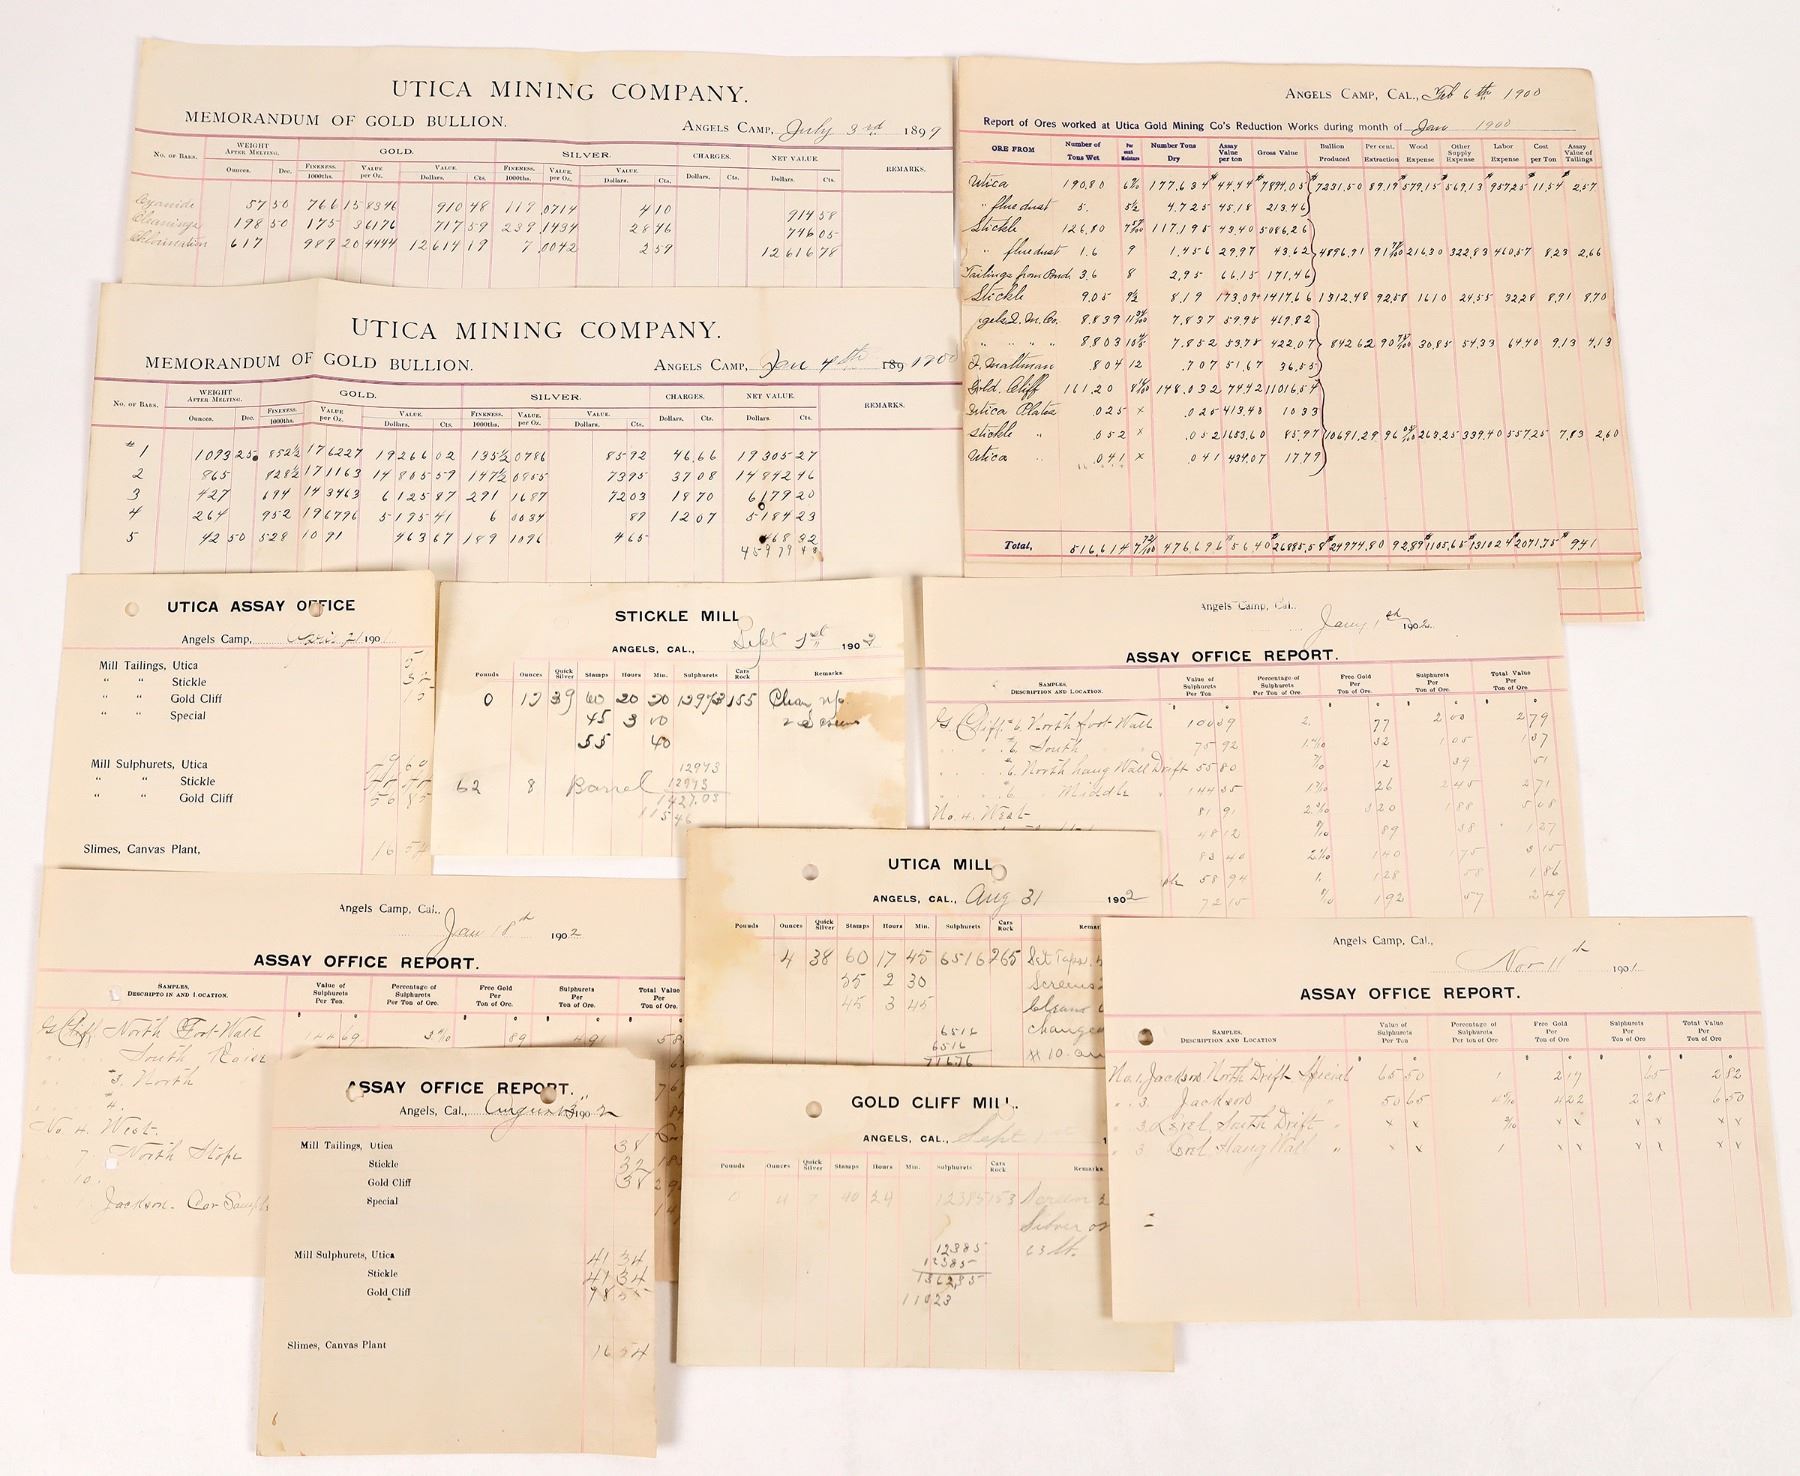 UTICA MINING COMPANY.
MEMORANDUM OF GOLD BULLION.
ANGELS CAMP, July 3rd 1899
No. of Bars. WEIGHT AFTER MELTING. GOLD. SILVER. CHARGES. NET VALUE REMARKS.
Ounces. Dec. FINENESS. 1000ths. VALUE per Oz. VALUE. Dollars. Cts. FINENESS. 1000ths. VALUE. per Oz. VALUE. Dollars. Cts. Dollars. Cts. Dollars. Cts.
Cyanide 57 50 766 15 8346 910 48 119 .0714 4 10 914 58
Cleanings 198 50 175 3 6176 717 59 239 .1434 28 46 746 05
Chlorination 617 989 20 4444 12614 19 7 .0042 2 59 12616 78
UTICA MINING COMPANY.
MEMORANDUM OF GOLD BULLION.
ANGELS CAMP, Jan 4th 189 1900
No. of Bars. WEIGHT AFTER MELTING. GOLD. SILVER. CHARGES. NET VALUE. REMARKS.
Ounces. Dec. FINENESS. 1000ths. VALUE per Oz. VALUE. Dollars. Cts. FINENESS. 1000ths. VALUE. per Oz. VALUE. Dollars. Cts. Dollars. Cts. Dollars. Cts.
# 1 1093 25 852½ 17 6227 19266 02 135½ 0786 85 92 46 66 19305 27
2 865 828½ 17 1163 14805 59 147½ 0855 73 95 37 08 14842 46
3 427 694 14 3463 6125 87 291 1687 72 03 18 70 6179 20
4 264 952 19 6796 5195 41 6 0034 89 12 07 5184 23
5 42 50 528 10 91 463 67 189 1096 4 65 468 32
45979 48
ANGELS CAMP, CAL., Feb 6th 1900
Report of Ores worked at Utica Gold Mining Co's Reduction Works during month of Jan 1900
ORE FROM Number of Tons Wet Per cent Moisture Number Tons Dry Assay Value per ton Gross Value Bullion Produced Per cent. Extraction Wood Expense Other Supply Expense Labor Expense Cost per Ton Assay Value of Tailings
Utica 190.80 177.634 44.44 7894.05 7231.50 89.19 579.15 569.13 957.25 11.54 2.57
" flue dust 5. 5½ 4.725 45.18 213.46
Stickle 126.80 117.195 43.40 5086.26
" flue dust 1.6 9 1.456 29.97 43.62 4896.91 216.30 322.83 460.57 8.23 2.66
Tailings from Pond. 3.6 8 2.95 66.15 171.46
Stickle 9.05 9½ 8.19 173.07 1417.66 1312.48 92.58 16.10 24.55 32.28 8.91 8.70
gels Q. M. Co. 8.839 7.837 59.95 469.82
" " " " 8.803 7.852 53.75 422.07 842.62 30.85 54.33 64.40 9.13 4.13
J. Maltman .804 12 .707 51.67 36.55
Gold. Cliff 161.20 148.032 74.42 11016.54
Utica Plates .025 x .025 413.40 10 33
Stickle " .052 x .052 1653.60 85.97 10691.29 263.25 339.40 557.25 7.83 2.60
Utica " .041 x .041 434.07 17.79
Total, 516.614 476.696 56.40 26885.58 24974.80 92.89 1105.65 1310.24 2071.75 9.41
UTICA ASSAY OFFICE
Angels Camp, 21 1901
Mill Tailings, Utica
" " Stickle
" " Gold Cliff
" " Special
Mill Sulphurets, Utica
" " Stickle
" " Gold Cliff 50 85
Slimes, Canvas Plant, 16 54
STICKLE MILL
ANGELS, CAL., Sept 1st 1902
Pounds Ounces Quick Silver Stamps Hours Min. Sulphurets Cars Rock Remarks
0 12 39 60 20 20 12973 155 Clean up
45 3 00 2 Screens
55 40
62 8 Barrel
12973
12973
1427.03
11546
Angels Camp, Cal.. Jany 1st 1902
ASSAY OFFICE REPORT.
SAMPLES. DESCRIPTION AND LOCATION. Value of Sulphurets Per Ton Percentage of Sulphurets Per Ton of Ore. Free Gold Per Ton of Ore. Sulphurets Per Ton of Ore. Total Value Per Ton of Ore.
G. Cliff #6 North foot Wall 100 39 2. 77 2 00 2 79
" #6. South " " 75 92 32 1 05 1 37
" #6. North hang Wall Drift 55 80 7/10 12 39 51
" #6 " Middle " 144 35 26 2 45 2 71
No. 4. West 81 91 3 20 1 88 5 08
48 12 89 38 1 27
83 40 1 40 1 75 3 15
58 94 1. 1 28 58 1 86
72 15 1 92 57 2 49
Angels Camp, Cal.. Jan 18th 1902
ASSAY OFFICE REPORT.
SAMPLES, DESCRIPTO IN AND LOCATION. Value of Sulphurets Per Ton. Percentage of Sulphurets Per Ton of Ore. Free Gold Per Ton of Ore. Sulphurets Per Ton of Ore. Total Value Per Ton of Ore.
G. Cliff North Foot Wall 144 69 89 4 91
" South Raise
" #3. North
" 4.
No 4. West.
" 7. North Stope
" 10.
" 1. Jackson. Car Sample
ASSAY OFFICE REPORT,
Angels, Cal., August 1902
Mill Tailings, Utica 38
Stickle 32
Gold Cliff 38
Special
Mill Sulphurets, Utica 41 34
Stickle 41 34
Gold Cliff 98 55
Slimes, Canvas Plant 16 54
6
UTICA MILL
ANGELS, CAL., Aug 31 1902
Pounds Ounces Quick Silver Stamps Hours Min. Sulphurets Cars Rock Remar
4 38 60 17 45 6516 265 Set Taps.
55 2 30 Screens
45 3 45 Cleans
6516 change
6516 # 10. an
71676
GOLD CLIFF MILL.
ANGELS, CAL., Sept 1st
Pounds Ounces Quick Silver Stamps Hours Min. Sulphurets Cars Rock Remarks
0 4 7 40 24 12385 153 Screen 2
Silver on
63 lb.
12385
12385
136235
11023
Angels Camp, Cal., Nov 11th 1901
ASSAY OFFICE REPORT.
SAMPLES. DESCRIPTION AND LOCATION Value of Sulphurets Per Ton Percentage of Sulphurets Per ton of Ore Free Gold Per Ton of Ore Sulphurets Per Ton of Ore Total Value Per Ton of Ore
No. 1. Jackson North Drift Special 65 50 1 2 17 65 2 82
" 3. Jackson " 50 65 4 22 2 28 6 50
" 3. South Drift " x x x x x x x x
" 3 Hang Wall " x x 1 x x x x x x